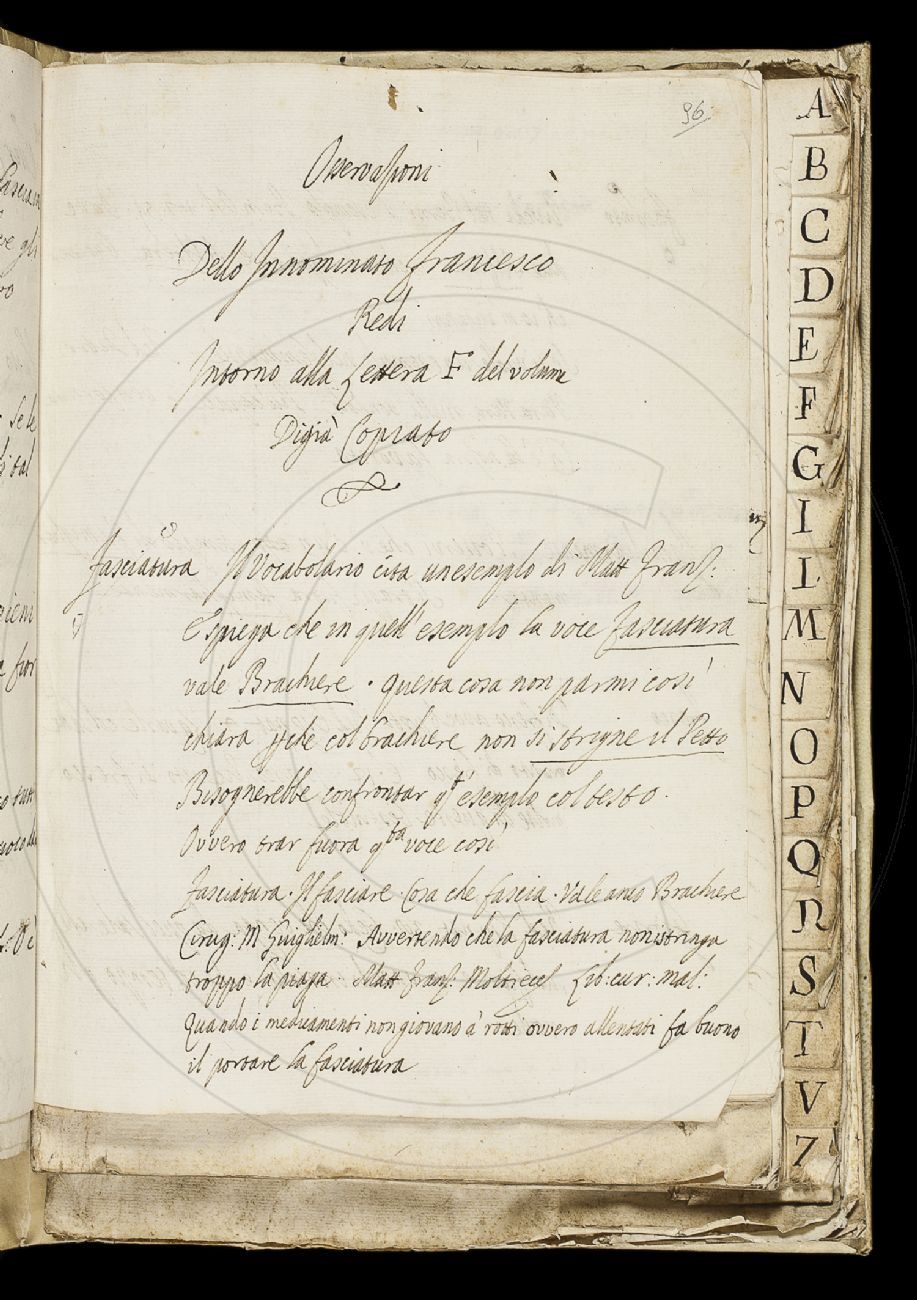 96.
Osservazioni
Dello Innominato Francesco
Redi
Intorno alla Lettera F del volume
Digià Copiato
Fasciatura Il Vocabolario cita un esempio di Matt Franz:
E spiega che in quell'esempio la voce fasciatura
vale Brachiere. questa cosa non parmi così
chiara pche col brachiere non si strigne il Petto
Bisognerebbe confrontar qto esempio col testo.
Ovvero trar fuora qta voce così
Fasciatura. Il fasciare. Cosa che fascia. Vale anco Brachiere
Cirug: M Guiglielm: Avvertendo che la fasciatura non istringa
troppo la piaga. Matt Franz: Lib: cur: mal:
Quando i medicamenti non giovano à rotti ovvero allentati fa buono
il portare la fasciatura
A
B
C
D
E
F
G
I
L
M
N
O
P
Q
R
S
T
V
Z